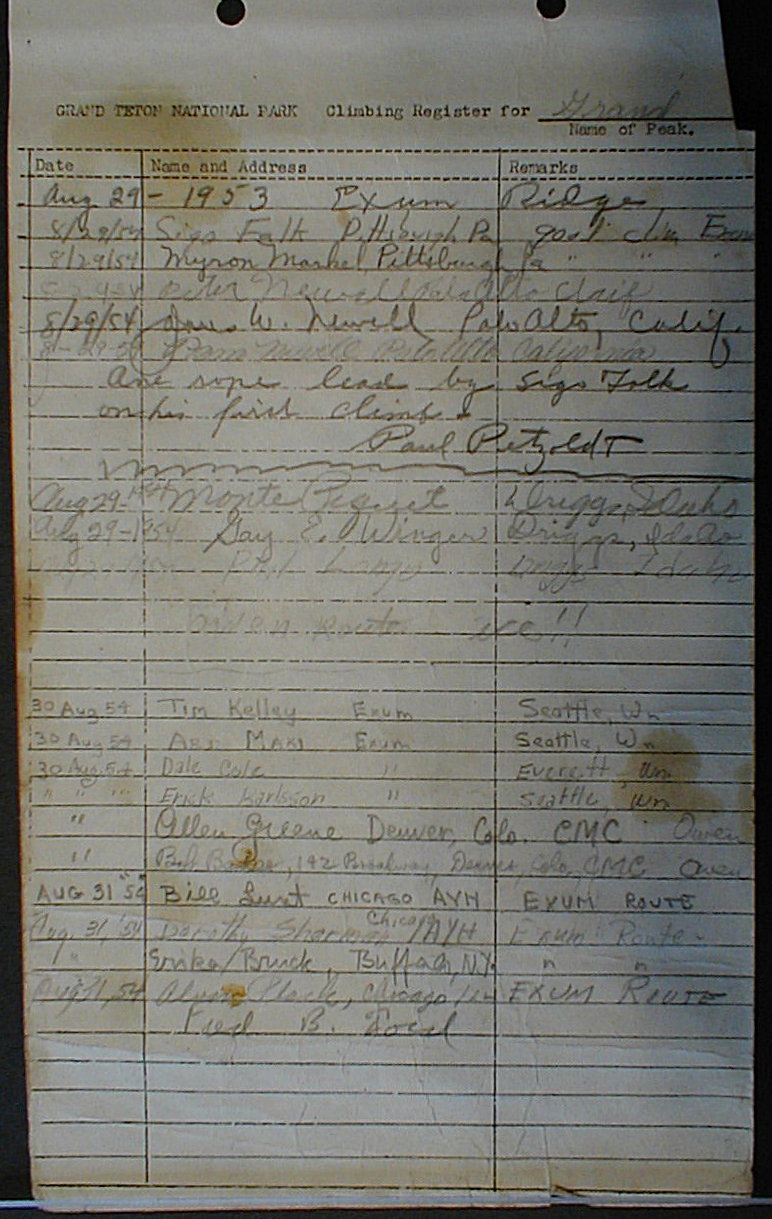 GRAND TETON NATIONAL PARK Climbing Register for Grand
Name of Peak.
Date Name and Address Remarks
Aug 29 - 1953 Exum Ridge
8/29/54 Sigo Falk Pittsburgh Pa good Exum
8/29/54 Myron Markel, Pittsburgh Pa " " "
Peter Newell Palo Alto
8/29/54 W. Newell Palo Alto, Calif.
Newell Palo Alto California
One rope lead by Sigo Folk
on his first climb.
Paul Petzoldt
Aug 29-1954 Monte Driggs, Idaho
Aug 29-1954 Gay E. Winger Driggs, Idaho
Phil Driggs Idaho
Owen Route ice!!
30 Aug 54 Tim Kelley Exum Seattle, Wn
30 Aug 54 Art Maki Exum Seattle, Wn
30 Aug. 54 Dale Cole " Everett, Wn
" " " Erick Karlsson " Seattle, Wn
" Allen Greene Denver, Colo. CMC Owen
" 142 Broadway, Denver, Colo, CMC Owen
AUG 31 "54" Bill CHICAGO AYH EXUM ROUTE
Aug. 31, '54 Dorothy Sherman Chicago AYH Exum Route
" Erika Bruck, Buffalo, N.Y. " "
Aug 31, 54 Chicago EXUM ROUTE
Fred B. Ford